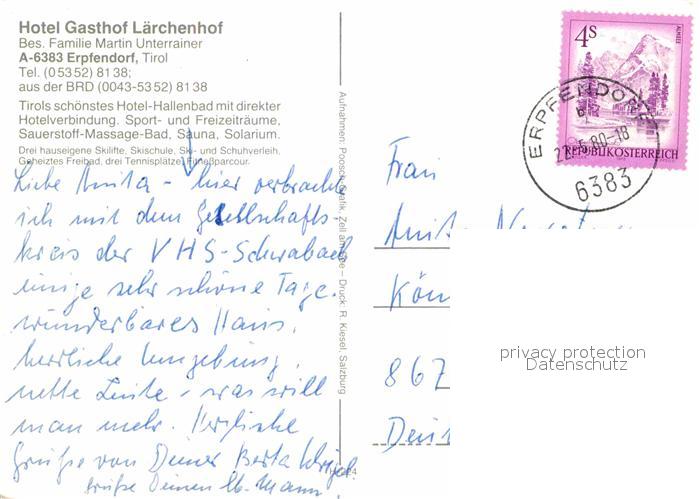 Hotel Gasthof Lärchenhof
Bes. Familie Martin Unterrainer
A-6383 Erpfendorf, Tirol
Tel. (05352) 8138;
aus der BRD (0043-5352) 8138
Tirols schönstes Hotel-Hallenbad mit direkter
Hotelverbindung. Sport- und Freizeiträume,
Sauerstoff-Massage-Bad, Sauna, Solarium.
Drei hauseigene Skilifte, Skischule, Ski- und Schuhverleih.
Geheiztes Freibad, drei Tennisplätze, Fitneßparcour.
Liebe Anita - hier verbrachte
ich mit dem Gesellschafts-
kreis der VHS-Schwabach
einige sehr schöne Tage.
wunderbares Haus,
herrliche Umgebung,
nette Leute - was will
man mehr. Herzliche
Grüße von Deiner Berta
Grüße Deinen lb. Mann
Aufnahmen: Grafik, Zell am See – Druck: R. Kiesel, Salzburg
4S
REPUBLIK ÖSTERREICH
ERPFENDORF
22.5.80-18
6383
Frau
Anit
Kön
867
privacy protection
Datenschutz